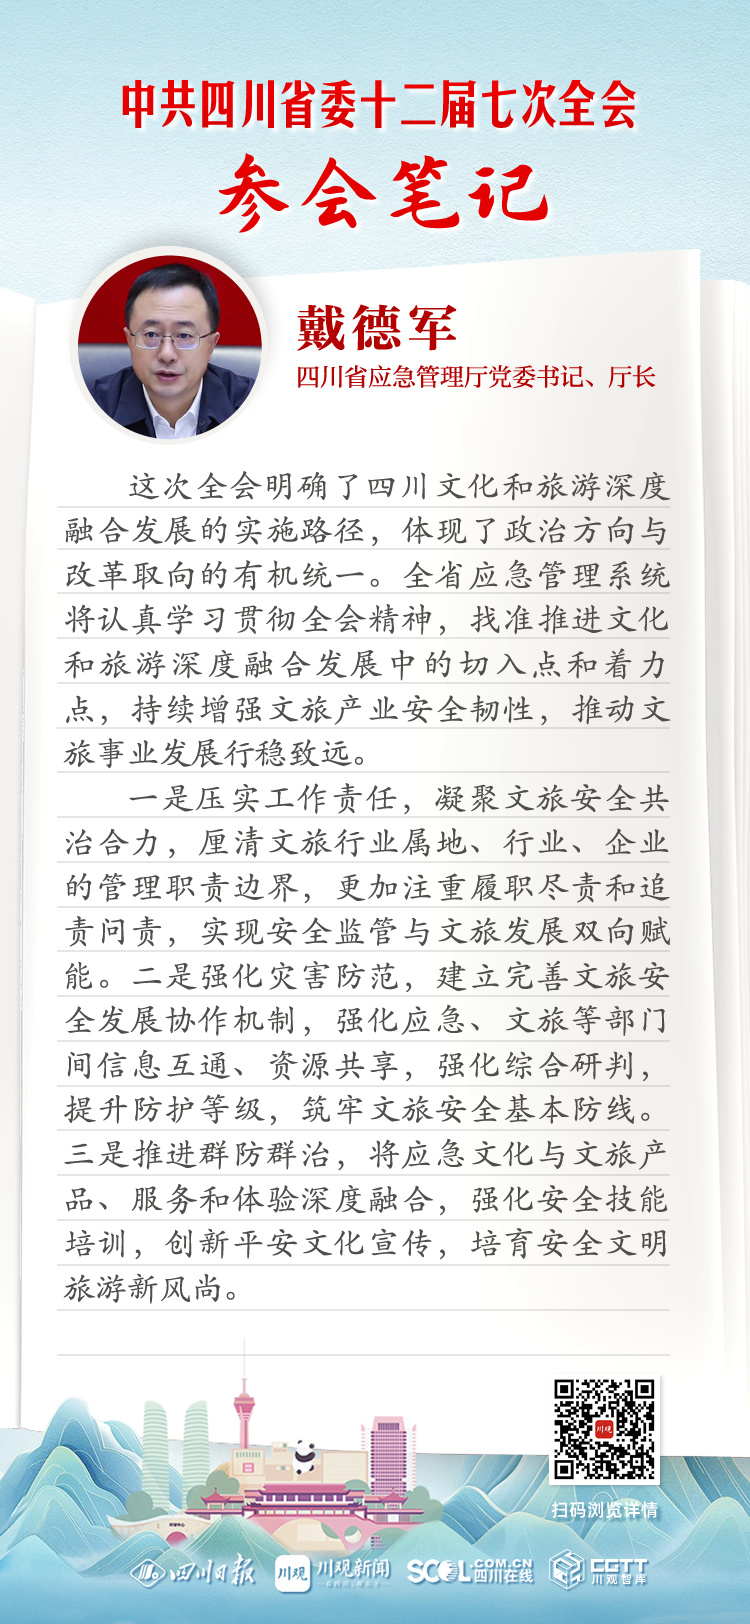 中共四川省委十二届七次全会
参会笔记
戴德军
四川省应急管理厅党委书记、厅长
这次全会明确了四川文化和旅游深度
融合发展的实施路径，体现了政治方向与
改革取向的有机统一。全省应急管理系统
将认真学习贯彻全会精神，找准推进文化
和旅游深度融合发展中的切入点和着力
点，持续增强文旅产业安全韧性，推动文
旅事业发展行稳致远。
一是压实工作责任，凝聚文旅安全共
治合力，厘清文旅行业属地、行业、企业
的管理职责边界，更加注重履职尽责和追
责问责，实现安全监管与文旅发展双向赋
能。二是强化灾害防范，建立完善文旅安
全发展协作机制，强化应急、文旅等部门
间信息互通、资源共享，强化综合研判，
提升防护等级，筑牢文旅安全基本防线。
三是推进群防群治，将应急文化与文旅产
品、服务和体验深度融合，强化安全技能
培训，创新平安文化宣传，培育安全文明
旅游新风尚。
川观
扫码浏览详情
四川日报
川观 川观新闻
SCOL.COM.CN
四川在线
CGTT
川观智库